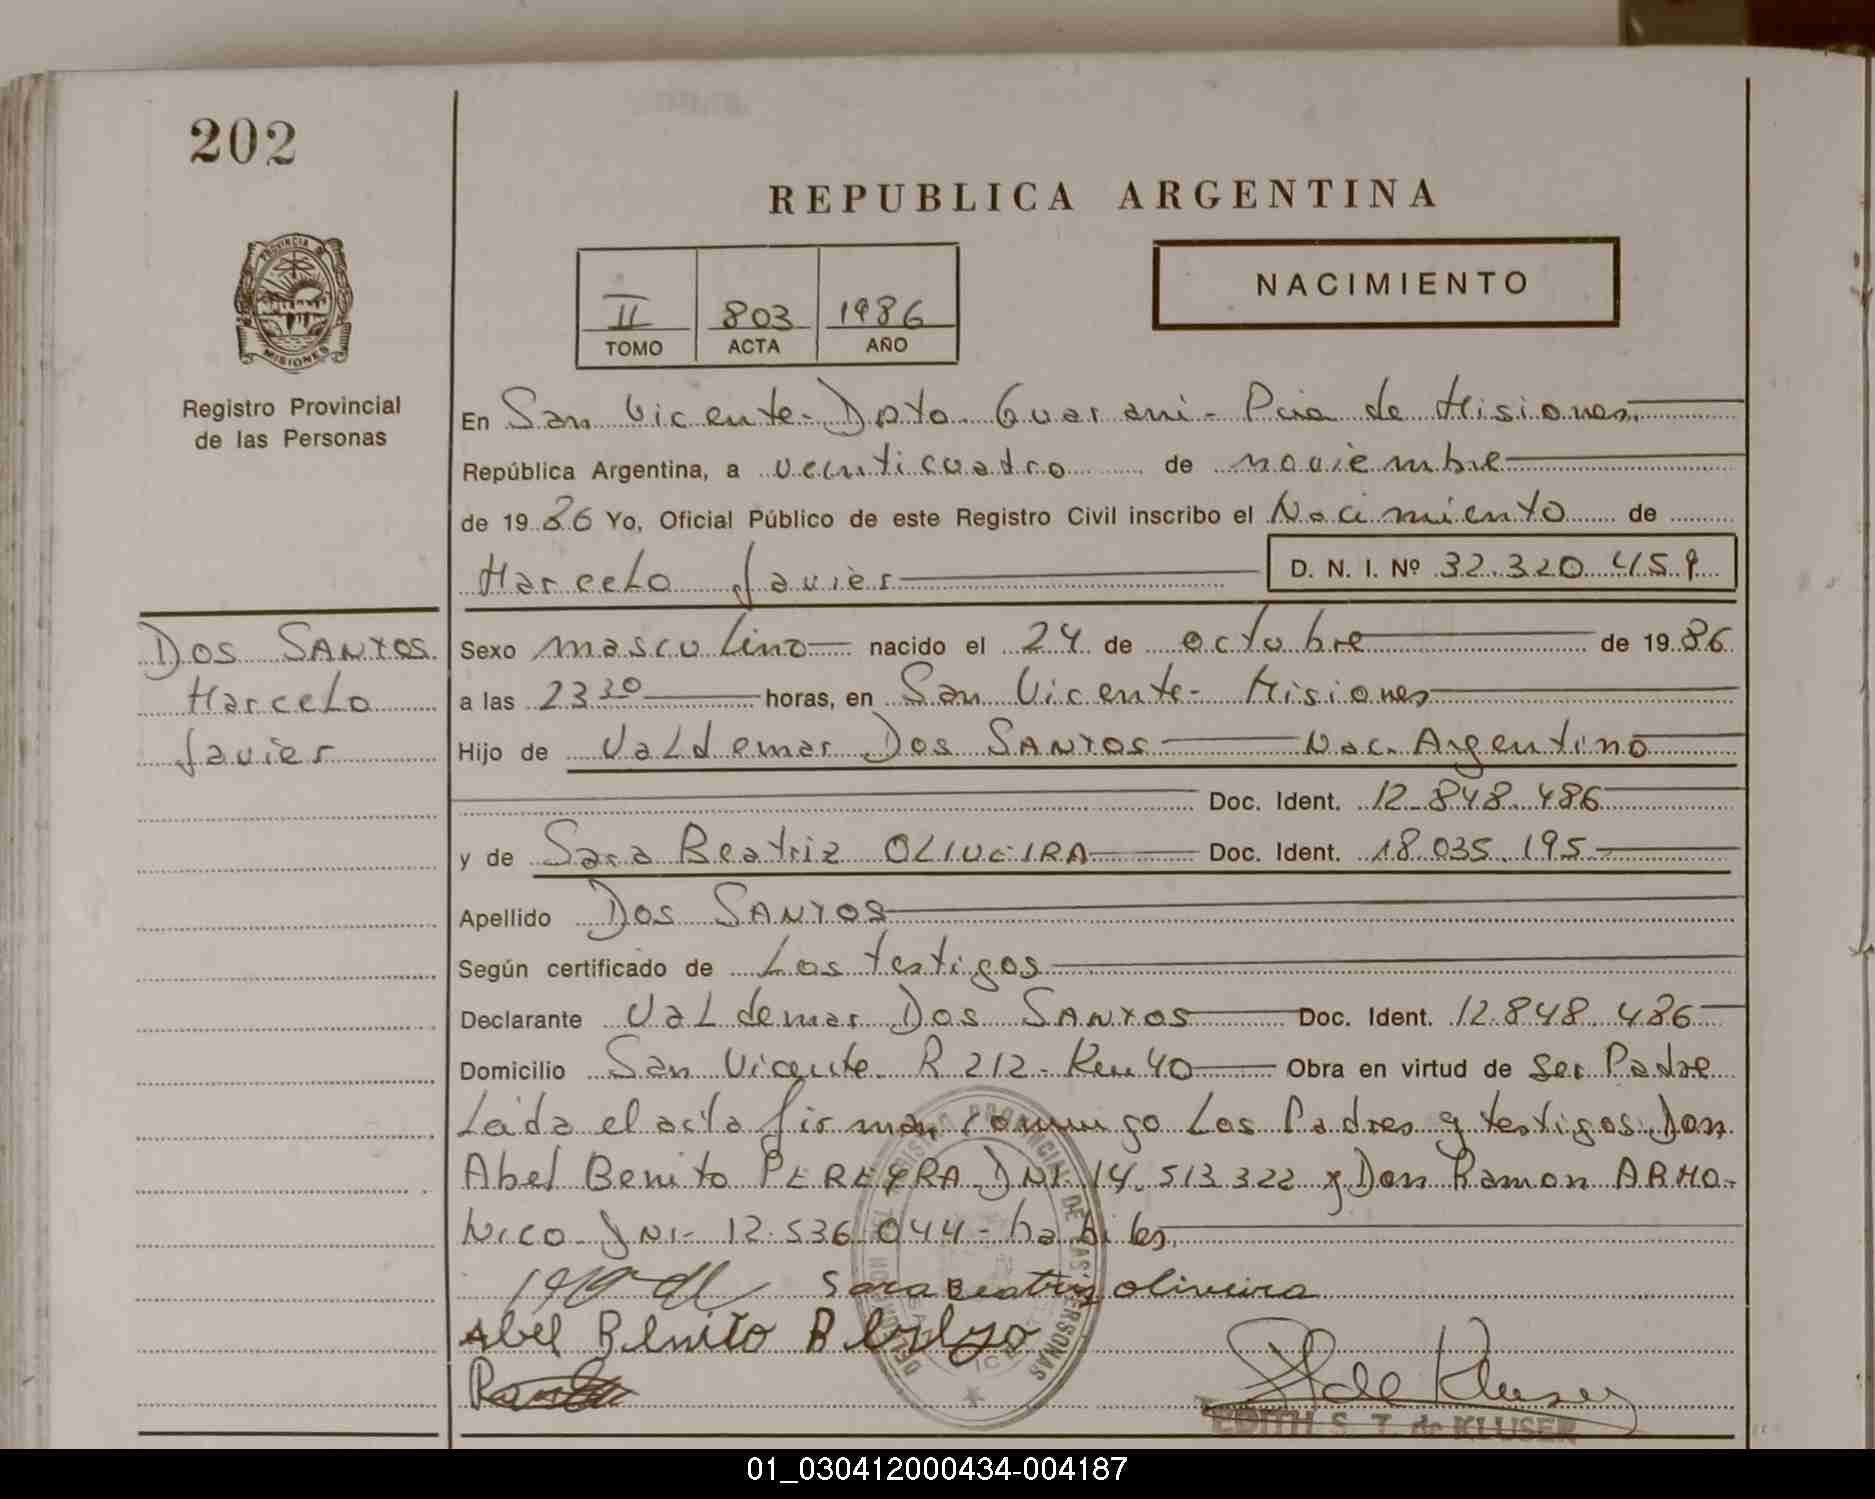 202
REPUBLICA ARGENTINA
PROVINCIA
MISIONES
Registro Provincial
de las Personas
II 803 1986
TOMO ACTA AÑO
NACIMIENTO
En San Vicente - Dpto Guarani - Pcia de Misiones
República Argentina, a veinticuatro de noviembre
de 19 86 Yo, Oficial Público de este Registro Civil inscribo el Nacimiento de
Marcelo Javier D. N. I. Nº 32.320.459
DOS SANTOS
Marcelo
Javier
Sexo masculino nacido el 24 de octubre de 19 86
a las 23 30 horas, en San Vicente - Misiones
Hijo de Valdemar DOS SANTOS Nac. Argentino
Doc. Ident. 12.848.486
y de Sara Beatriz OLIVEIRA Doc. Ident. 18.035.195
Apellido DOS SANTOS
Según certificado de Los testigos
Declarante Valdemar DOS SANTOS Doc. Ident. 12.848.486
Domicilio San Vicente R 212 - Km 40 Obra en virtud de ser Padre
Leida el acta firman conmigo Los Padres y testigos Don
Abel Benito PEREYRA DNI 14.513.322 y Don Ramon ARMO-
NICO DNI - 12.536.044 - habiles
Sara Beatriz oliveira
Abel Benito
EDITH S. T. de KLUSER
01_030412000434-004187